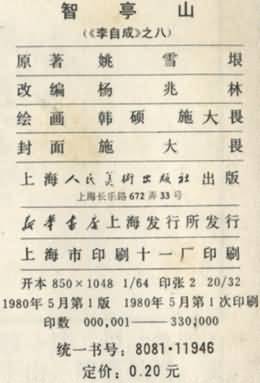 智亭山
(《李自成》之八)
原著 姚雪垠
改编 杨兆林
绘画 韩硕 施大畏
封面 施大畏
上海人民美术出版社出版
上海长乐路672弄33号
新华书店上海发行所发行
上海市印刷十一厂印刷
开本 850×1048 1/64 印张 2 20/32
1980年5月第1版 1980年5月第1次印刷
印数 000,001——330,000
统一书号：8081·11946
定价：0.20 元